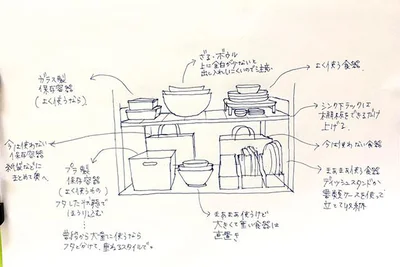 ガラス製
保存容器
(よく使うなら)
ざる・ボウル
上に余白が少ないと
出し入れしにくいので注意
よく使う食器
シンク下ラックは
棚板をできるだけ
上げる
今は使わない
保存容器
紙袋などに
まとめて奥へ
今は使わない食器
プラ製
保存容器
(よく使うもの)
フタした状態で
ほうり込む
普段から大量に使うなら
フタと分けて、重ねるスタイルで。
まあまあ使うけど
大きくて重い食器は
直置き
まあまあ使う食器
ディッシュスタンドか
書類ケースを使って
立てて収納